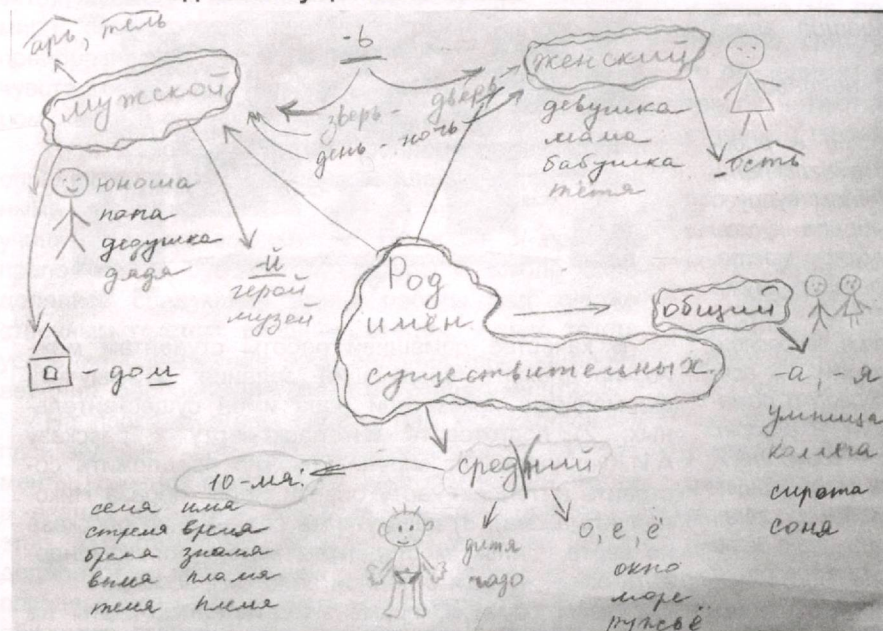 арь, тель
-ь
мужской
женский
зверь - дверь
день - ночь
девушка
мама
бабушка
тётя
-ость
юноша
папа
дедушка
дядя
-й
герой
музей
- дом
Род
имен
существительных
общий
-а, -я
умница
коллега
сирота
соня
средний
10-мя:
семя имя
стремя время
бремя знамя
вымя пламя
темя племя
дитя
чадо
о, е, ё
окно
море
ружьё